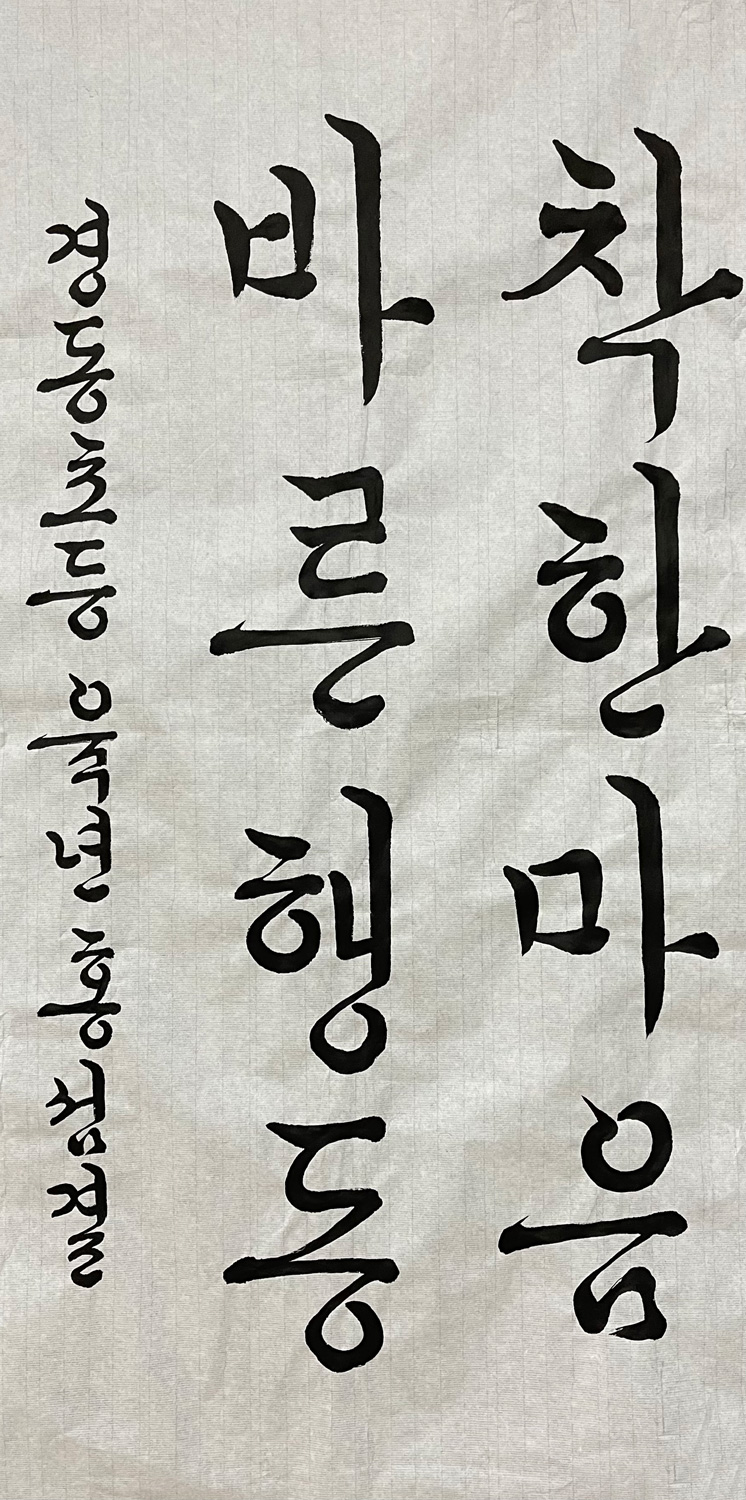 착한마음
바른행동
경동초등 육년